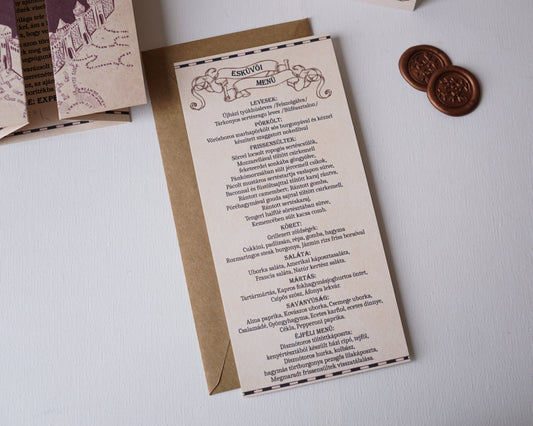 ESKÜVŐI
MENÜ
LEVESEK:
Újházi tyúkhúsleves /Felszolgálva/
Tárkonyos sertésragu leves /Büféasztalon/
PÖRKÖLT:
Vörösboros marhapörkölt sós burgonyával és közben
készített szaggatott nokedlival
FRISSENSÜLTEK:
Sörrel locsolt ropogós sertéscsülök,
Mozzarellával töltött csirkemell
feketeerdei sonkába göngyölve,
Pankómorzsában sült jérce csíkok,
Pácolt mustáros sertéstarja vaslapon sütve,
Baconnal és füstöltsajttal töltött karaj rántva,
Rántott camembert, Rántott gomba,
Póréhagymával gonda sajttal töltött csirkemell,
Rántott sertéskaraj,
Tengeri halfilé sörtésztában sütve,
Kemencében sült kacsa comb.
KÖRET:
Grillezett zöldségek:
Cukkini, padlizsán, répa, gomba, hagyma
Rozmaringos steak burgonya, Jázmin rizs friss borsóval
SALÁTA:
Uborka saláta, Amerikai káposztasaláta,
Francia saláta, Natúr kertész saláta.
MÁRTÁS:
Tartármártás, Kapros fokhagymásjoghurtos öntet,
Csípős szósz, Áfonya lekvár.
SAVANYÚSÁG:
Alma paprika, Kovászos uborka, Csemege uborka,
Csalamádé, Gyöngyhagyma, Ecetes karfiol, ecetes dinnye,
Cékla, Pepperoni paprika.
ÉJFÉLI MENÜ:
Disznótoros töltöttkáposzta:
kenyértésztából készült házi cipó, tejföl,
Disznótoros hurka, kolbász,
hagymás törtburgonya pezsgős lilakáposzta,
Megmaradt frissensültek visszatálalása.